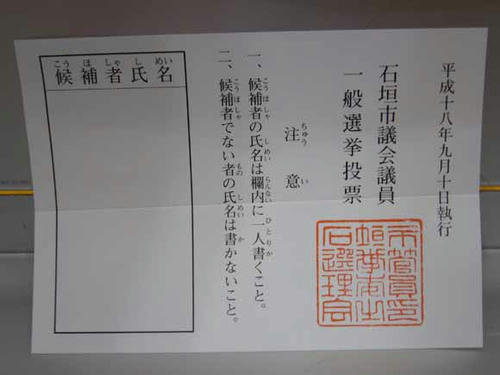 平成十八年九月十日執行
石垣市議会議員
一般選挙投票
注意
ちゅうい
一、候補者の氏名は欄内に一人書くこと。
こうほしゃ しめい らんない ひとりか
二、候補者でない者の氏名は書かないこと。
こうほしゃ もの しめい か
候補者氏名
こうほしゃしめい